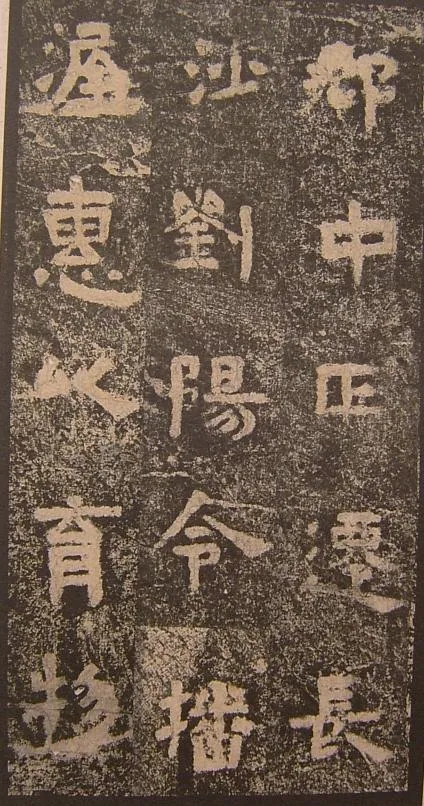 郡中正遷長
沙劉陽令播
渥惠以育物